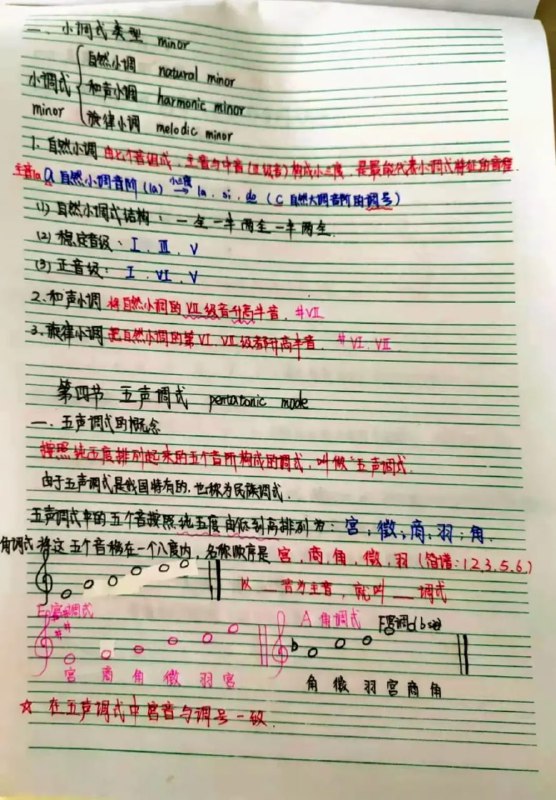 一、小调式类型 minor
自然小调 natural minor
小调式 和声小调 harmonic minor
minor 旋律小调 melodic minor
1. 自然小调 由七个音组成，主音与中音(Ⅲ级音)构成小三度，是最能代表小调式特征的音程
主音la a 自然小调音阶(la) 小三度→ la、si、do (C自然大调音阶的调号)
(1) 自然小调式结构：一全一半两全一半两全.
(2) 稳定音级：Ⅰ、Ⅲ、Ⅴ
(3) 正音级：Ⅰ、Ⅵ、Ⅴ
2. 和声小调 将自然小调的Ⅶ级音升高半音. #Ⅶ
3. 旋律小调 把自然小调的第Ⅵ、Ⅶ级都升高半音. #Ⅵ、Ⅶ
第四节 五声调式 pentatonic mode
一、五声调式的概念
按照纯五度排列起来的五个音所构成的调式，叫做"五声调式.
由于五声调式是我国特有的，也称为民族调式.
五声调式中的五个音按照纯五度由低到高排列为：宫、徵、商、羽、角.
角调式 将这五个音移在一个八度内，名称顺序是 宫、商、角、徵、羽 (简谱：1.2.3.5.6.)
以__音为主音，就叫__调式
宫调式 A 角调式 F宫
宫 商 角 徵 羽 宫 角 徵 羽 宫 商 角
☆ 在五声调式中宫音与调号一致.